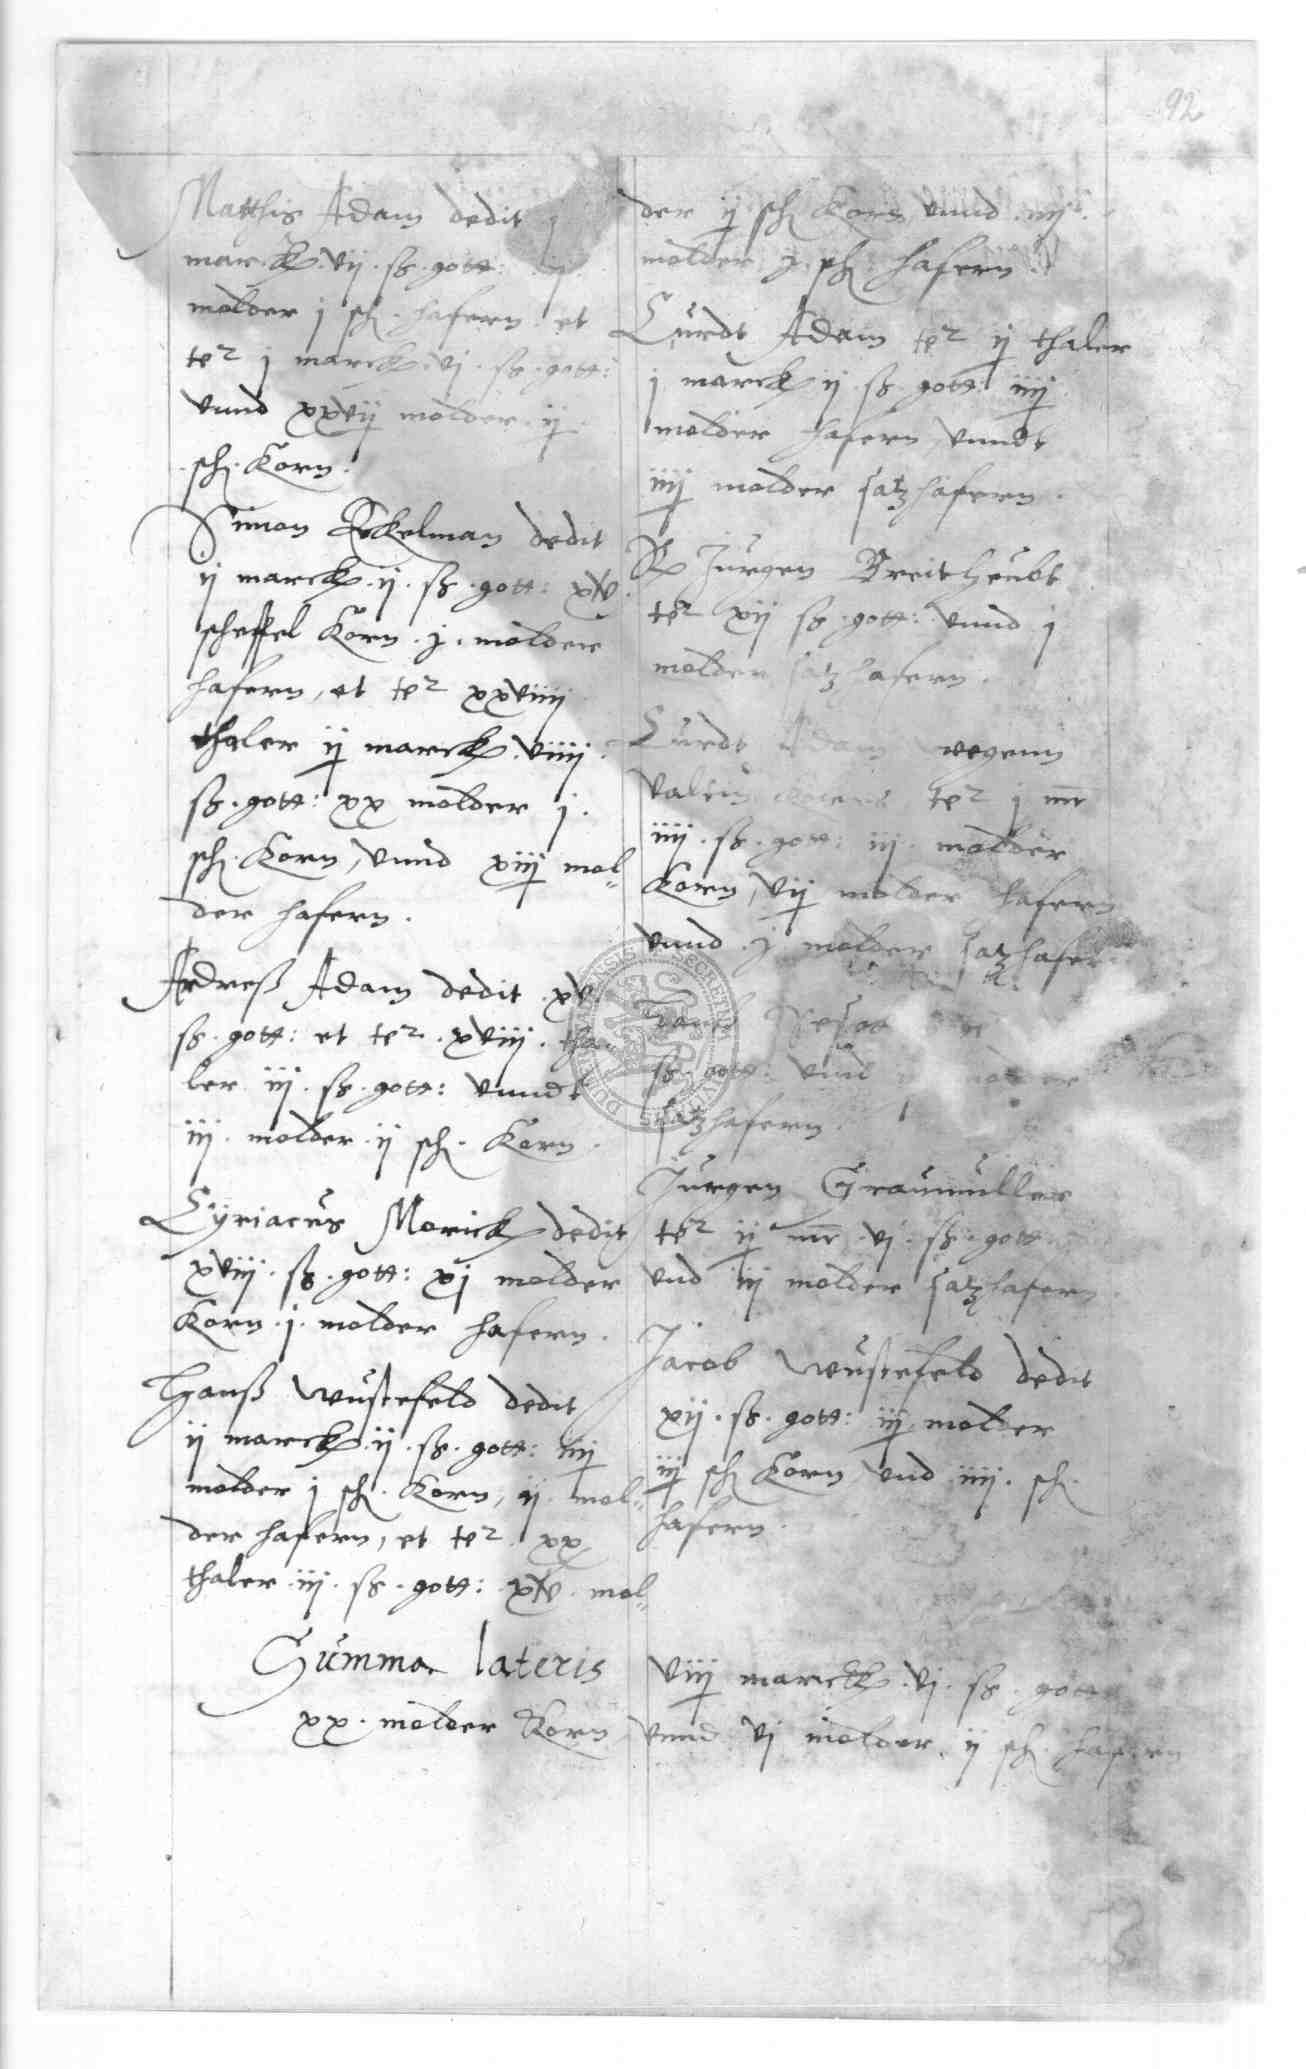 92
Matthis Adam dedit j
marck vij ß gott: ij
molder j sch. hafern et
te2 j marck vj ß gott:
vnnd xxvij molder ij
sch. Korn.
Simon Eckelman dedit
ij marck ij ß gott: xv
scheffel Korn j molder
hafern, et te2 xxviiij
thaler ij marck viiij
ß gott: xx molder j
sch. Korn, vnnd xiij mol=
der hafern.
Andreß Adam dedit xv
ß gott: et te2 xviij tha
ler iij ß gott: vnndt
iij molder ij sch. Korn.
Cyriacus Morick dedit
xviij ß gott: xj molder
Korn j molder hafern.
Hanß Wustefeld dedit
ij marck ij ß gott: iiij
molder j sch. Korn, ij mol=
der hafern, et te2 xx
thaler iij ß gott: xv mol=
der ij sch. Korn, vnnd iiij
molder j sch. hafern.
Curdt Adam te2 ij thaler
j marck ij ß gott: iiij
molder hafern, vnndt
iiij molder satzhafern.
Jurgen Breitheubt
te2 xij ß gott: vnnd j
molder satzhafern.
Curdt Adam wegenn
Valtin te2 j mr
iiij ß gott: iij molder
Korn, vij molder hafern
vnnd j molder satzhafer
ß gott: vnd molder
satzhafern
Jurgen Graumuller
te2 ij mr vj ß gott
vnd iij molder satzhafern.
Jacob Wustefeld dedit
xij ß gott: iij molder
iij sch. Korn, vnd iiij sch.
hafern.
Summa lateris viij marck vj ß gott
xx molder Korn vnnd vj molder ij sch. hafern